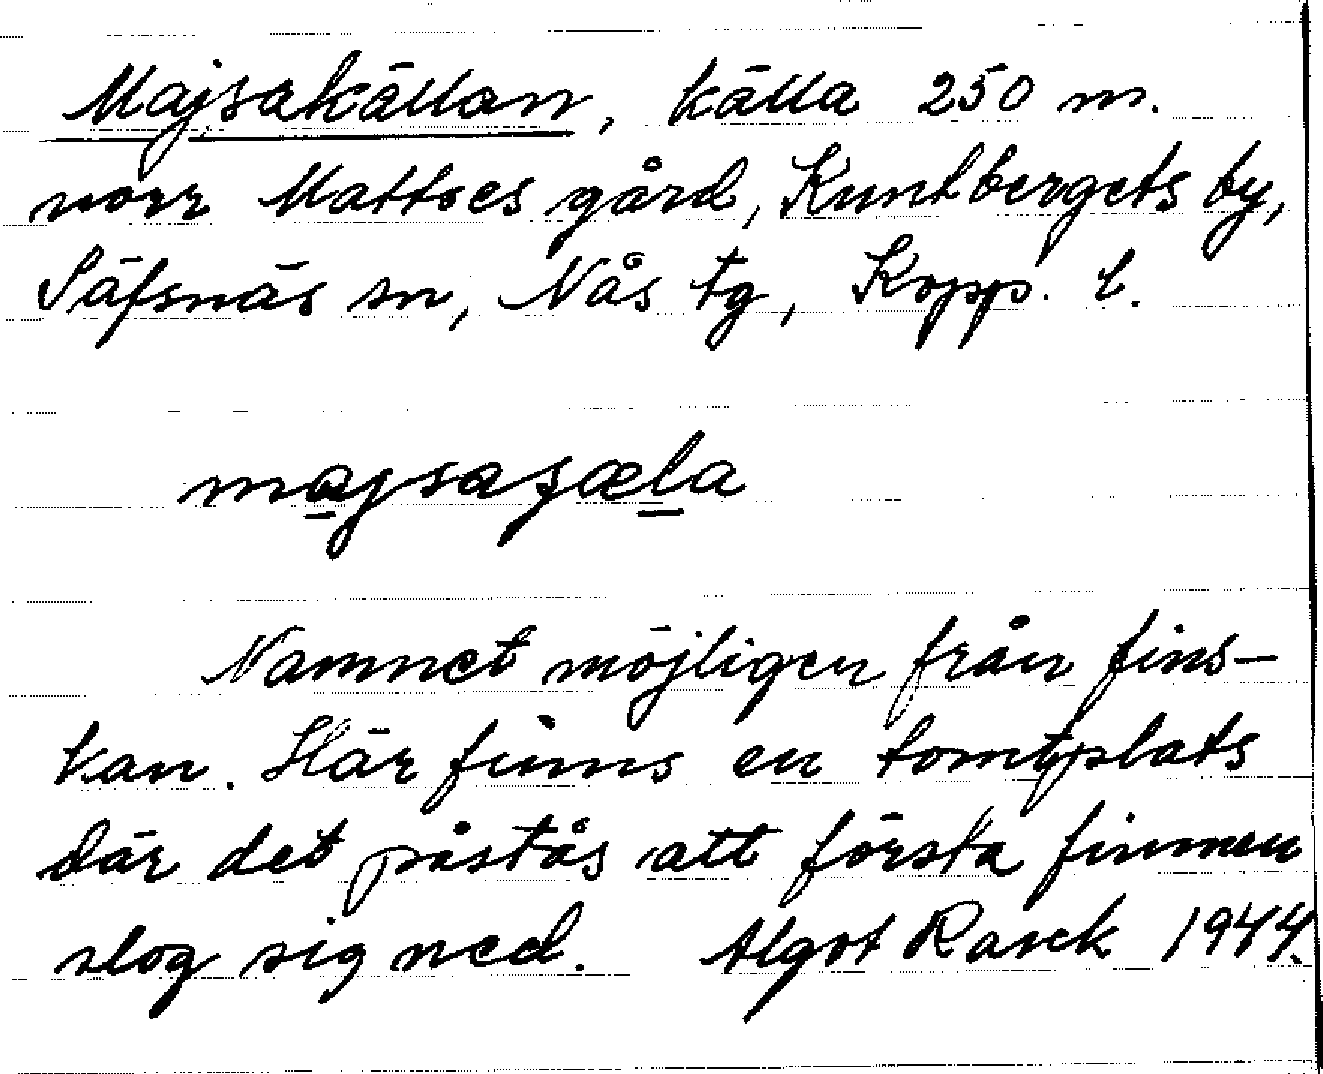 Majsakällan, källa 250 m.
norr Mattses gård, Kuntbergets by,
Säfsnäs sn, Nås tg, Kopp. l.
Namnet möjligen från fins-
kan. Här finns en tomtplats
där det påstås att första finnen
slog sig ned. Algot Rask 1944.